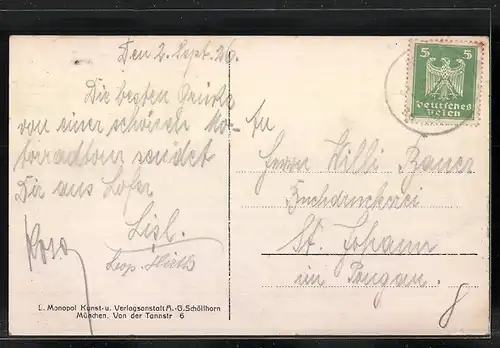 Den 2. Sept. 26.
Die besten Grüße
von einer schönen Mo-
torradtour sendet
Dir aus Lofer
Lisl.
Leop. Hirth
L. Monopol Kunst-u. Verlagsanstalt A.-G. Schöllhorn
München, Von der Tannstr 6
5 5
Deutsches
Reich
An
Herrn Willi Bauer
Buchdruckerei
St. Johann
im Pongau.